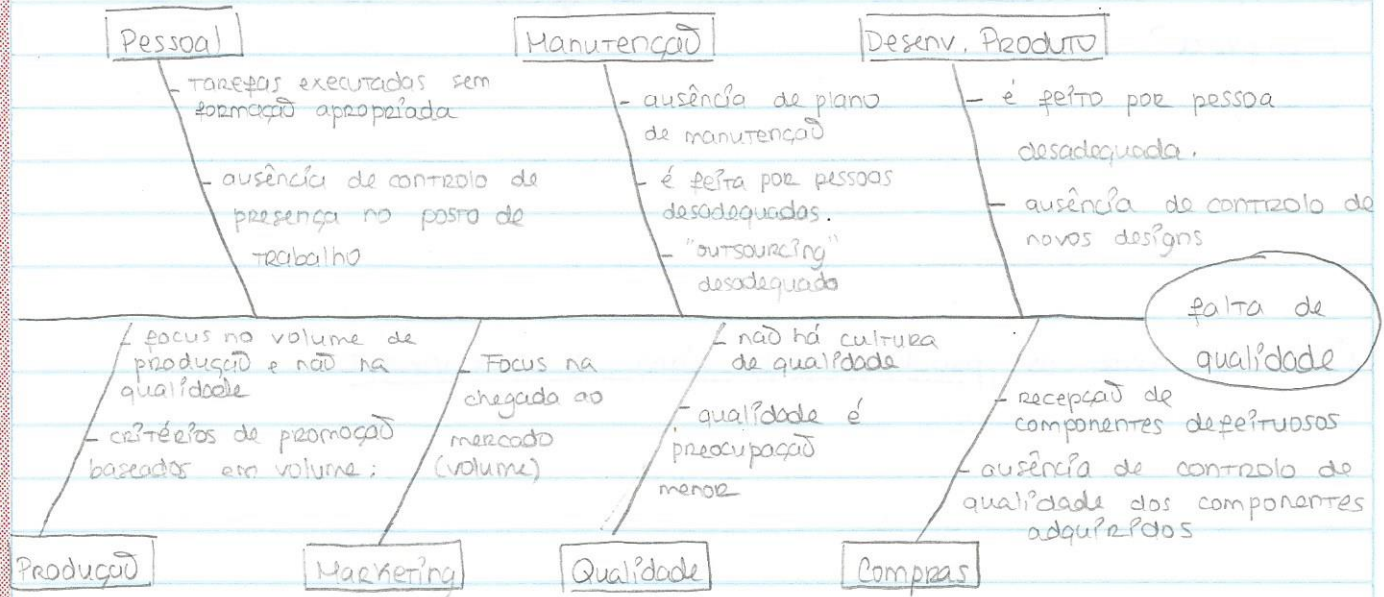 Pessoal
- Tarefas executadas sem
formação apropriada
- ausência de controlo de
presença no posto de
trabalho
Manutenção
- ausência de plano
de manutenção
- é feita por pessoas
desadequadas.
- "outsourcing"
desadequado
Desenv. Produto
- é feito por pessoa
desadequada.
- ausência de controlo de
novos designs
falta de
qualidade
- focus no volume de
produção e não na
qualidade
- critérios de promoção
baseados em volume;
Produção
- Focus na
chegada ao
mercado
(volume)
Marketing
- não há cultura
de qualidade
- qualidade é
preocupação
menor
Qualidade
- recepção de
componentes defeituosos
- ausência de controlo de
qualidade dos componentes
adquiridos
Compras